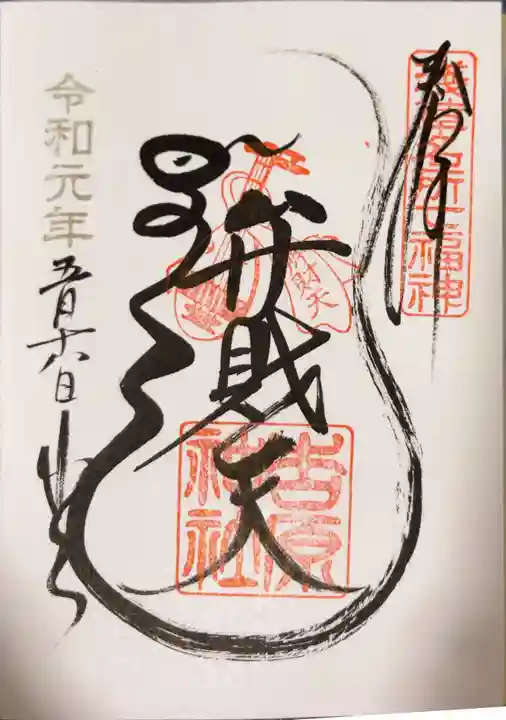 奉拝
浅草名所七福神
弁財天
弁財天
吉原
神社
令和元年
五月十六日